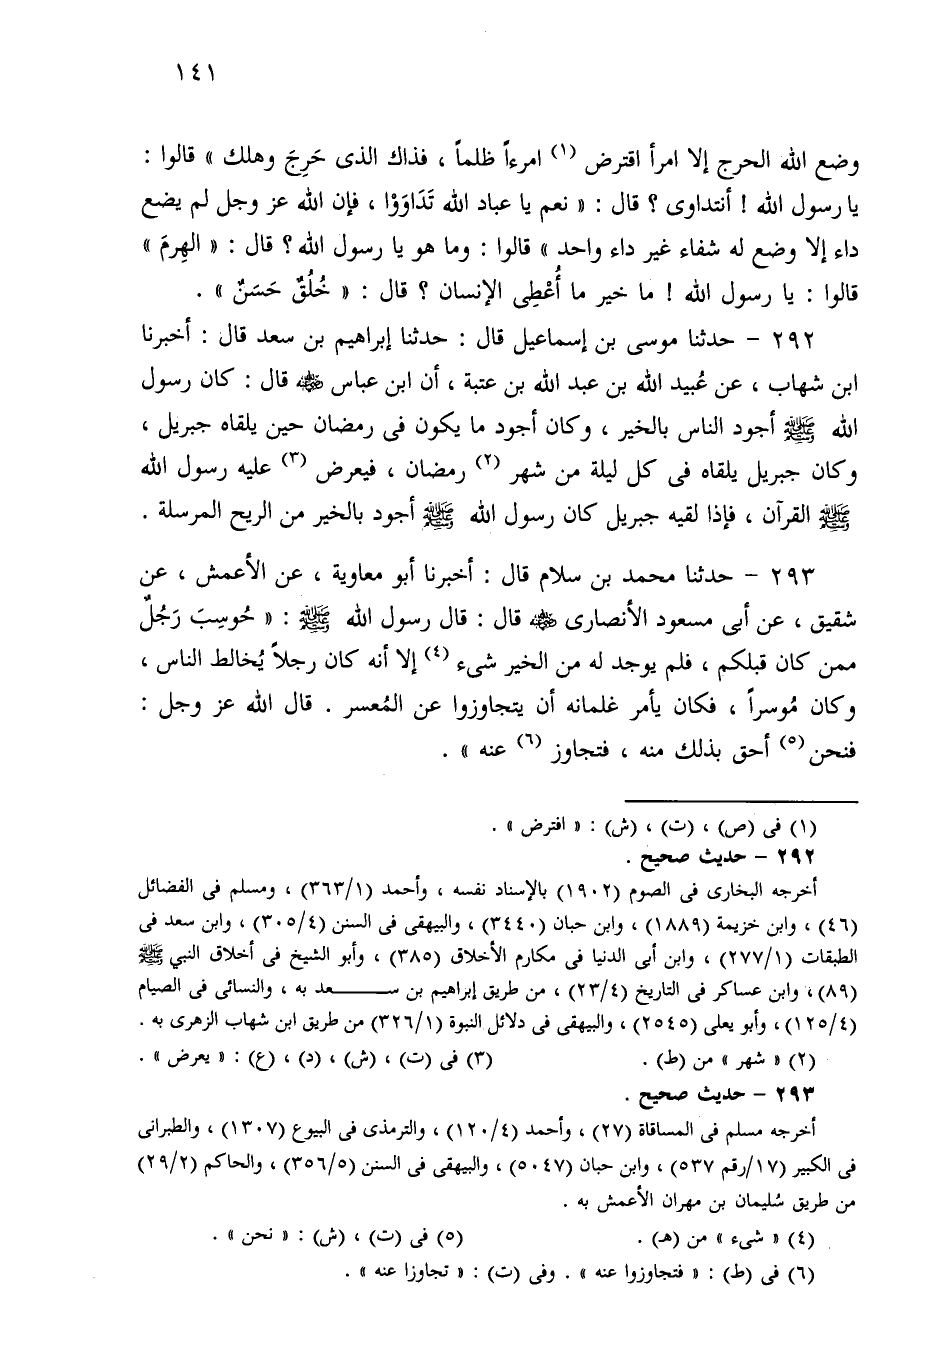 ١٤١
وضع الله الحرج إلا امرأ اقترض (١) امرءاً ظلماً ، فذاك الذى حَرِجَ وهلك » قالوا :
يا رسول الله ! أنتداوى ؟ قال : « نعم يا عباد الله تَدَاوَوْا ، فإن الله عز وجل لم يضع
داء إلا وضع له شفاء غير داء واحد » قالوا : وما هو يا رسول الله ؟ قال : « الهِرمَ »
قالوا : يا رسول الله ! ما خير ما أُعْطِى الإنسان ؟ قال : « خُلُقٌ حَسَنٌ » .
٢٩٢ – حدثنا موسى بن إسماعيل قال : حدثنا إبراهيم بن سعد قال : أخبرنا
ابن شهاب ، عن عُبيد الله بن عبد الله بن عتبة ، أن ابن عباس رضي الله عنه قال : كان رسول
الله ﷺ أجود الناس بالخير ، وكان أجود ما يكون فى رمضان حين يلقاه جبريل ،
وكان جبريل يلقاه فى كل ليلة من شهر (٢) رمضان ، فيعرض (٣) عليه رسول الله
ﷺ القرآن ، فإذا لقيه جبريل كان رسول الله ﷺ أجود بالخير من الريح المرسلة .
٢٩٣ – حدثنا محمد بن سلام قال : أخبرنا أبو معاوية ، عن الأعمش ، عن
شقيق ، عن أبى مسعود الأنصارى رضي الله عنه قال : قال رسول الله ﷺ : « حُوسِبَ رَجُلٌ
ممن كان قبلكم ، فلم يوجد له من الخير شىء (٤) إلا أنه كان رجلاً يُخالط الناس ،
وكان مُوسراً ، فكان يأمر غلمانه أن يتجاوزوا عن المُعسر . قال الله عز وجل :
فنحن (٥) أحق بذلك منه ، فتجاوز (٦) عنه » .
(١) فى (ص) ، (ت) ، (ش) : « افترض » .
٢٩٢ – حديث صحيح .
أخرجه البخارى فى الصوم (١٩٠٢) بالإسناد نفسه ، وأحمد (٣٦٣/١) ، ومسلم فى الفضائل
(٤٦) ، وابن خزيمة (١٨٨٩) ، وابن حبان (٣٤٤٠) ، والبيهقى فى السنن (٣٠٥/٤) ، وابن سعد فى
الطبقات (٢٧٧/١) ، وابن أبى الدنيا فى مكارم الأخلاق (٣٨٥) ، وأبو الشيخ فى أخلاق النبي ﷺ
(٨٩) ، وابن عساكر فى التاريخ (٢٣/٤) ، من طريق إبراهيم بن ســـــعد به ، والنسائى فى الصيام
(١٢٥/٤) ، وأبو يعلى (٢٥٤٥) ، والبيهقى فى دلائل النبوة (٣٢٦/١) من طريق ابن شهاب الزهرى به .
(٢) « شهر » من (ط) . (٣) فى (ت) ، (ش) ، (د) ، (ع) : « يعرض » .
٢٩٣ – حديث صحيح .
أخرجه مسلم فى المساقاة (٢٧) ، وأحمد (١٢٠/٤) ، والترمذى فى البيوع (١٣٠٧) ، والطبرانى
فى الكبير (١٧/رقم ٥٣٧) ، وابن حبان (٥٠٤٧) ، والبيهقى فى السنن (٣٥٦/٥) ، والحاكم (٢٩/٢)
من طريق سُليمان بن مهران الأعمش به .
(٤) « شىء » من (هـ) . (٥) فى (ت) ، (ش) : « نحن » .
(٦) فى (ط) : « فتجاوزوا عنه » . وفى (ت) : « تجاوزا عنه » .